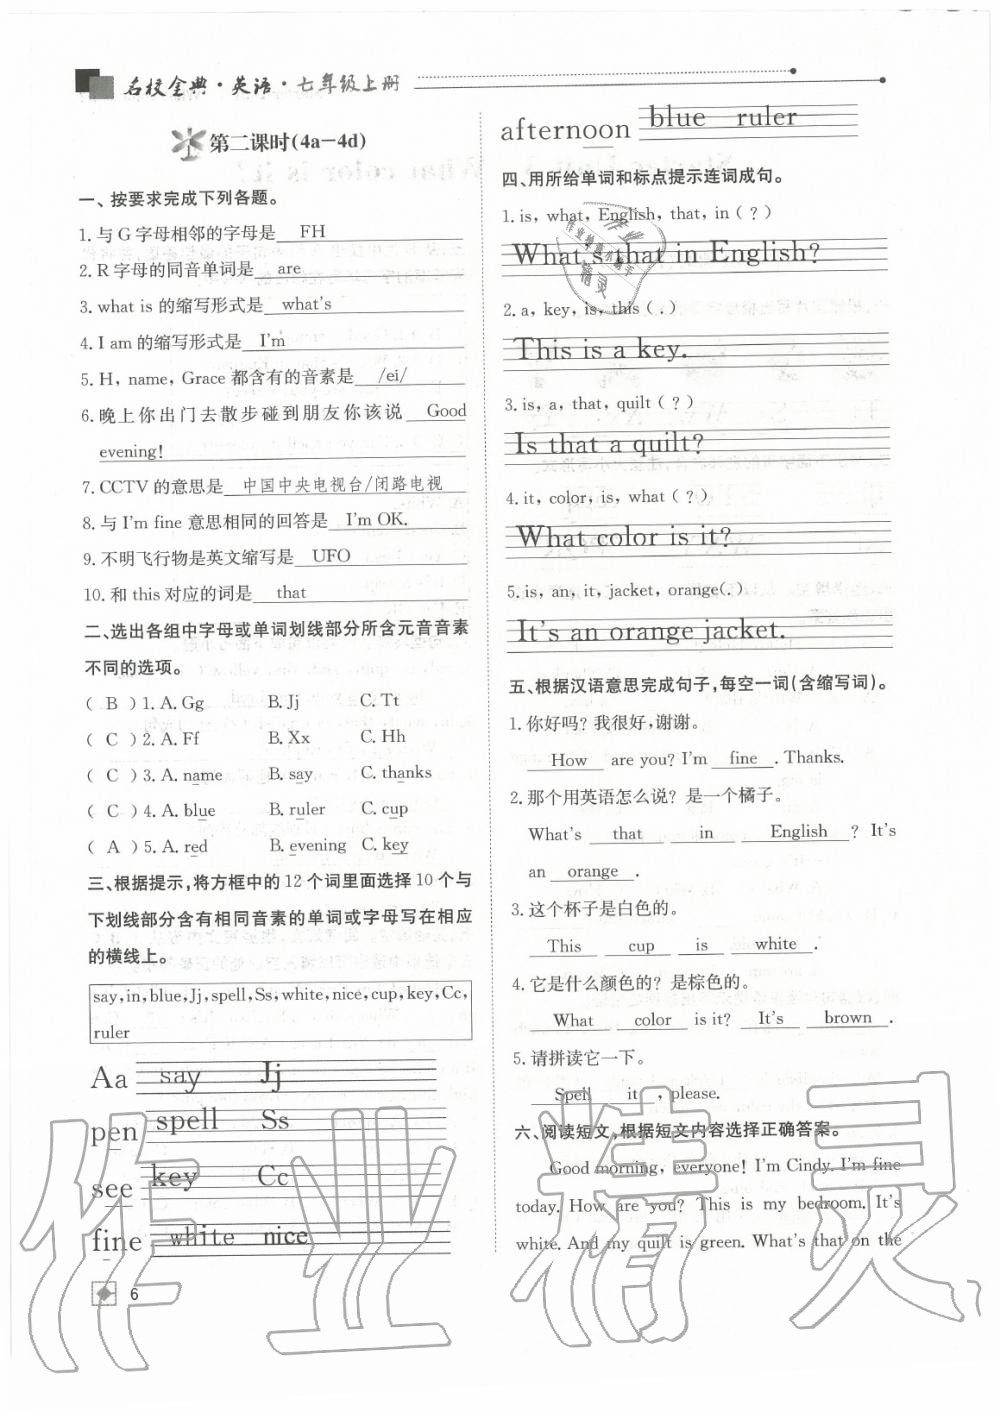 名校金典·英语·七年级上册
第二课时(4a—4d)
一、按要求完成下列各题。
1. 与 G 字母相邻的字母是 FH
2. R 字母的同音单词是 are
3. what is 的缩写形式是 what's
4. I am 的缩写形式是 I'm
5. H, name, Grace 都含有的音素是 /ei/
6. 晚上你出门去散步碰到朋友你该说 Good
evening!
7. CCTV 的意思是 中国中央电视台/闭路电视
8. 与 I'm fine 意思相同的回答是 I'm OK.
9. 不明飞行物是英文缩写是 UFO
10. 和 this 对应的词是 that
二、选出各组中字母或单词划线部分所含元音音素
不同的选项。
( B )1. A. Gg B. Jj C. Tt
( C )2. A. Ff B. Xx C. Hh
( C )3. A. name B. say C. thanks
( C )4. A. blue B. ruler C. cup
( A )5. A. red B. evening C. key
三、根据提示,将方框中的 12 个词里面选择 10 个与
下划线部分含有相同音素的单词或字母写在相应
的横线上。
say, in, blue, Jj, spell, Ss, white, nice, cup, key, Cc,
ruler
Aa say Jj
pen spell Ss
see key Cc
fine white nice
6
afternoon blue ruler
四、用所给单词和标点提示连词成句。
1. is, what, English, that, in ( ? )
What's that in English?
2. a, key, is, this ( . )
This is a key.
3. is, a, that, quilt ( ? )
Is that a quilt?
4. it, color, is, what ( ? )
What color is it?
5. is, an, it, jacket, orange(.)
It's an orange jacket.
五、根据汉语意思完成句子,每空一词(含缩写词)。
1. 你好吗? 我很好,谢谢。
How are you? I'm fine . Thanks.
2. 那个用英语怎么说? 是一个橘子。
What's that in English ? It's
an orange .
3. 这个杯子是白色的。
This cup is white .
4. 它是什么颜色的? 是棕色的。
What color is it? It's brown .
5. 请拼读它一下。
Spell it , please.
六、阅读短文,根据短文内容选择正确答案。
Good morning, everyone! I'm Cindy. I'm fine
today. How are you? This is my bedroom. It's
white. And my quilt is green. What's that on the
作业精灵